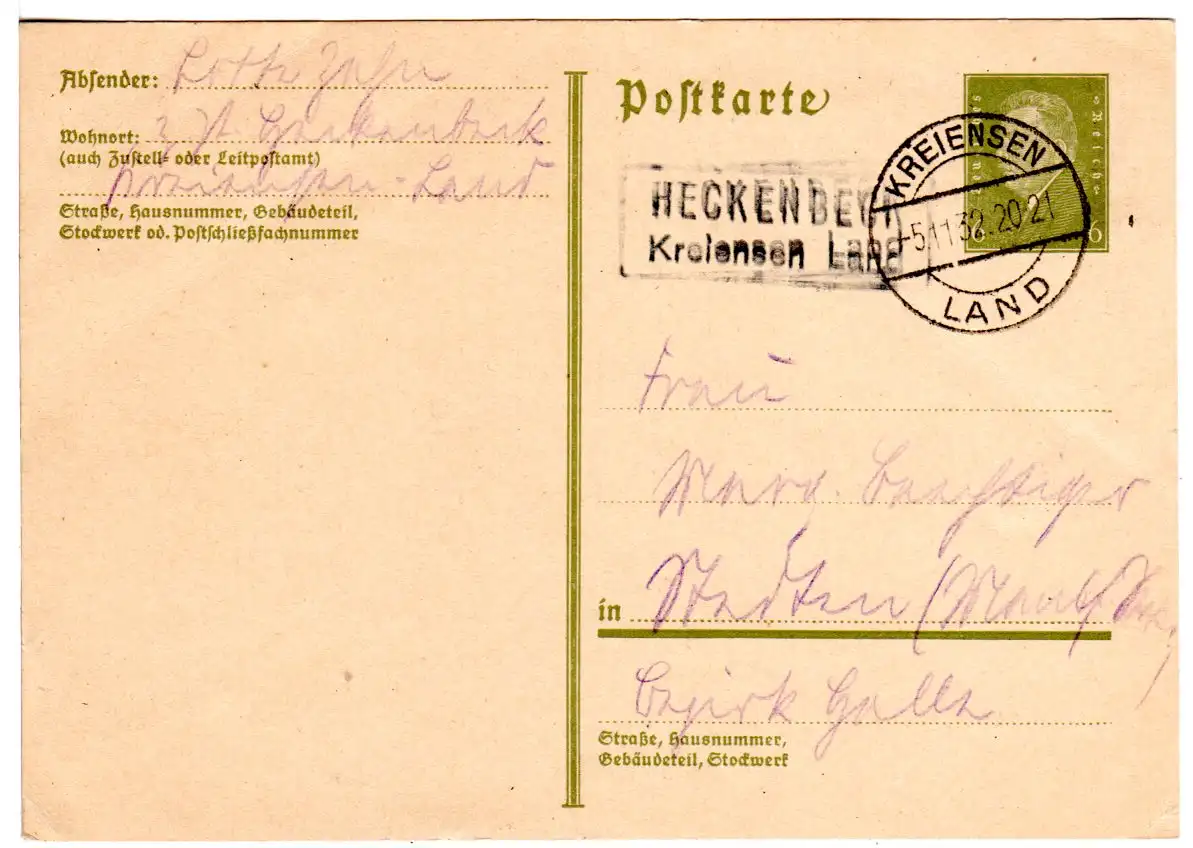 Absender: Lotte Zahn
Wohnort: z. Zt. Heckenbeck
(auch Zustell- oder Leitpostamt)
Kreiensen-Land
Straße, Hausnummer, Gebäudeteil,
Stockwerk od. Postschließfachnummer
Postkarte
Deutsches Reich
6 6
KREIENSEN
-5.11.32.20-21
LAND
HECKENBECK
Kreiensen Land
Frau
Marg.
in Stedten (Mansf.
Bezirk Halle
Straße, Hausnummer,
Gebäudeteil, Stockwerk